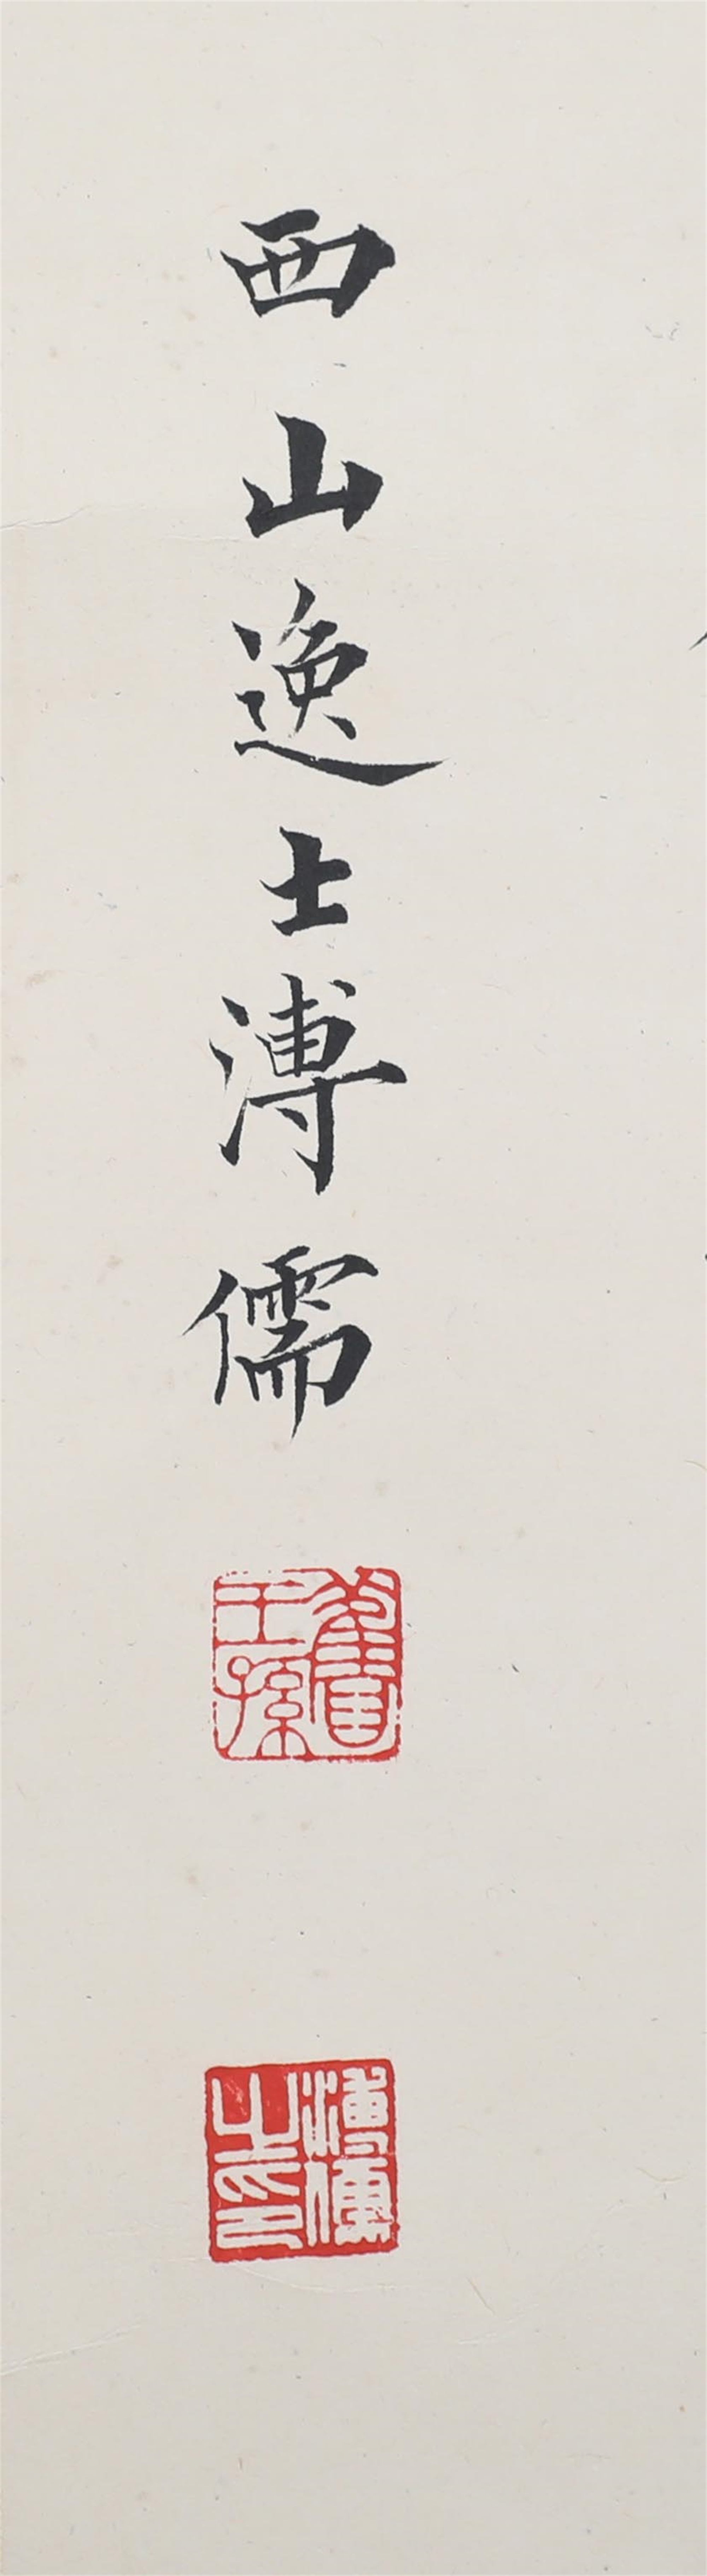 西山逸士溥儒
舊王孫
溥儒之印